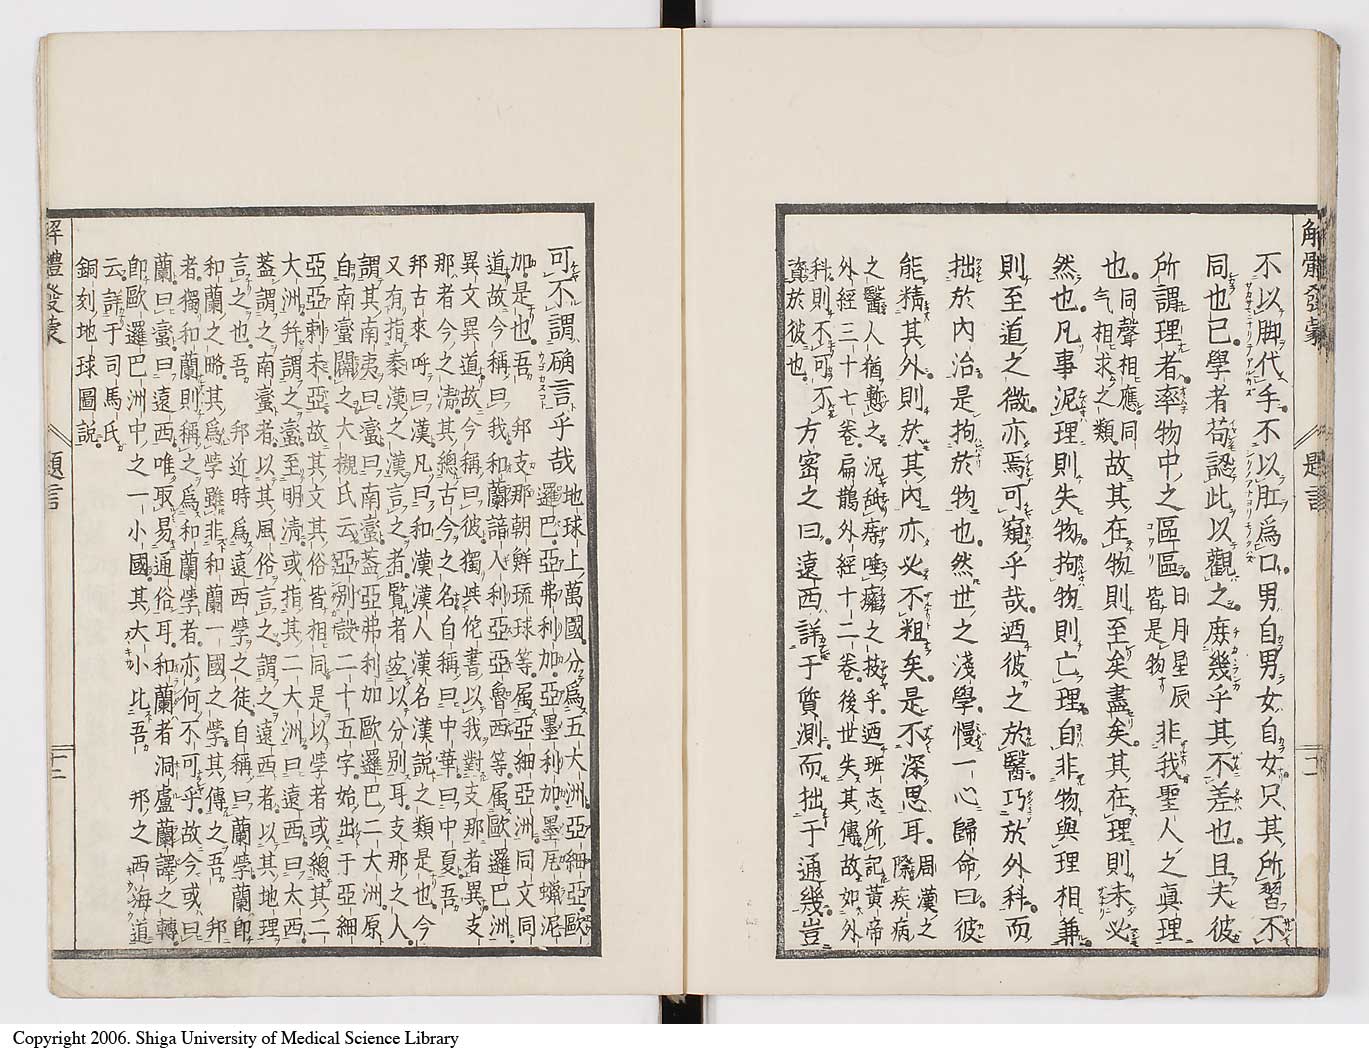 解體發蒙 題言 十二
不以脚代手不以肛爲口男自男女自女只其所習不
同也已學者苟認此以觀之庶幾乎其不差也且夫彼
所謂理者率物中之區區日月星辰皆是物非我聖人之眞理
也同聲相應同气相求之類故其在物則至矣盡矣其在理則未必
然也凡事泥理則失物拘物則亡理自非物與理相兼
則至道之微亦焉可窺乎哉迺彼之於醫巧於外科而
拙於內治是拘於物也然世之淺學慢一心歸命曰彼
能精其外則於其內亦必不粗矣是不深思耳周漢之際疾病
之醫人猶慙之況舐痔唾癰之技乎迺班志所記黃帝
外經三十七卷扁鵲外經十二卷後世失其傳故如外
科則不可不資於彼也方密之曰遠西詳于質測而拙于通幾豈
可不謂确言乎哉地球上萬國分爲五大洲亞細亞歐
邏巴亞弗利加亞墨利加墨瓦蠟泥
加是也吾邦支那朝鮮琉球等屬亞細亞洲同文同
道故今稱曰我和蘭諳入利亞亞魯西等屬歐邏巴洲
異文異道故今稱曰彼獨其佗書以我對支那者異支
那者今之淸其總古今之名自稱曰中華曰中夏吾
邦古來呼曰漢凡曰和漢漢人漢名漢說之類是也今
又有指秦漢之漢言之者覽者宜以分別耳支那之人
謂其南夷曰蠻曰南蠻蓋亞弗利加歐邏巴二大洲原
自南蠻闢之大槻氏云亞弗二十五字始出于亞細
亞亞剌未亞故其文其俗皆相同是以學者或總其二
大洲幷謂之蠻至明淸或指其二大洲曰遠西曰太西
蓋謂之南蠻者以其風俗言之謂之遠西者以其地理
言之也吾邦近時爲遠西學之徒自稱曰蘭學蘭卽
和蘭之略其爲學雖非和蘭一國之學其傳之吾邦
者獨和蘭則稱之爲和蘭學者亦何不可乎故今或曰
蘭曰蠻曰遠西唯取易通俗耳和蘭者洞盧蘭譯之轉
卽歐邏巴洲中之一小國其大小比吾邦之西海道
云詳于司馬氏
銅刻地球圖說
解體發蒙 題言 十二
Copyright 2006. Shiga University of Medical Science Library